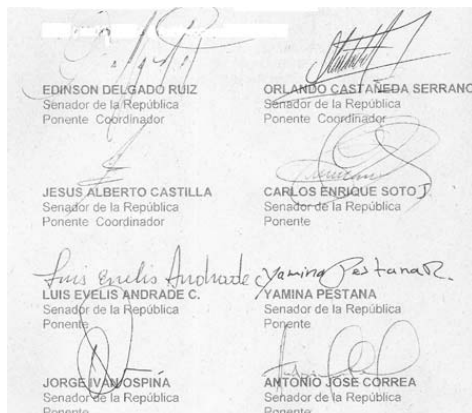 EDINSON DELGADO RUIZ
Senador de la República
Ponente Coordinador
ORLANDO CASTAÑEDA SERRANO
Senador de la República
Ponente Coordinador
JESUS ALBERTO CASTILLA
Senador de la República
Ponente Coordinador
CARLOS ENRIQUE SOTO J.
Senador de la República
Ponente
Luis Evelis Andrade C
LUIS EVELIS ANDRADE C.
Senador de la República
Ponente
Yamina Pestana R.
YAMINA PESTANA
Senador de la República
Ponente
JORGE IVAN OSPINA
Senador de la República
Ponente
ANTONIO JOSE CORREA
Senador de la República
Ponente